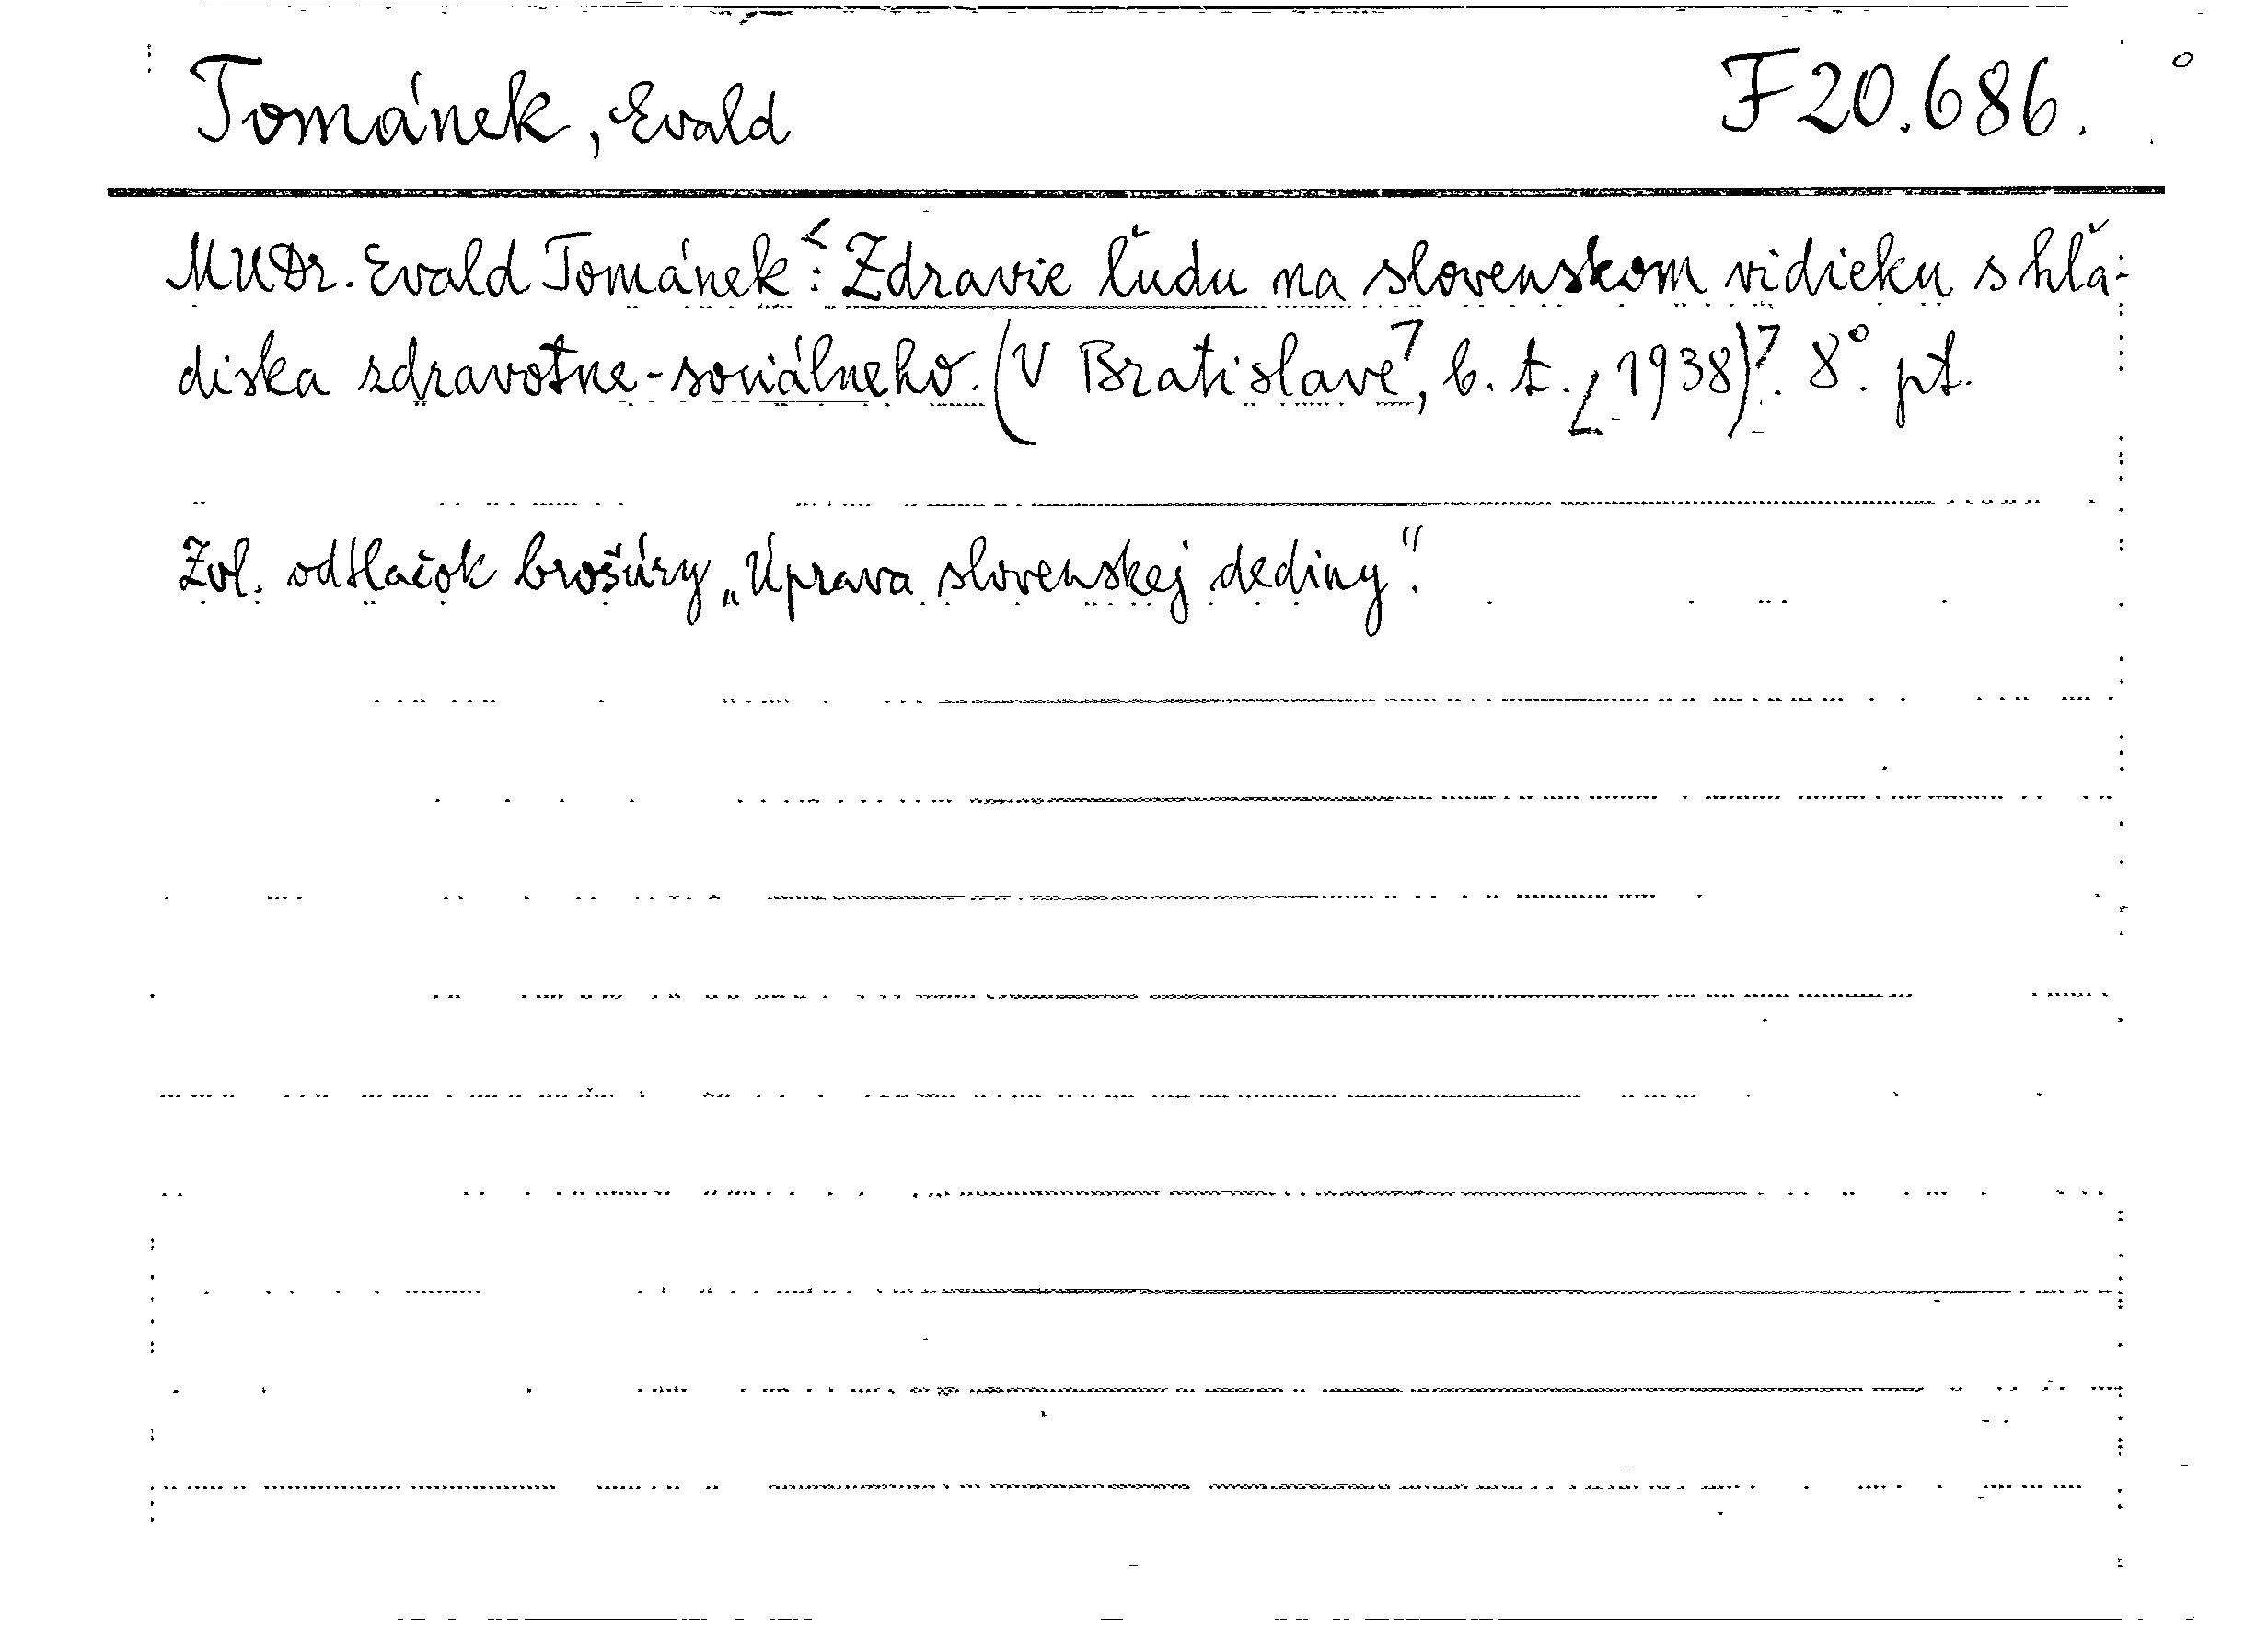 Tománek, Evald F 20.686.
MUDr. Evald Tománek: Zdravie ľudu na slovenskom vidieku s hľa-
diska zdravotne-sociálneho. (V Bratislave, b. t., 1938). 8°. pt.
Zvl. odtlačok brošúry „Úprava slovenskej dediny".